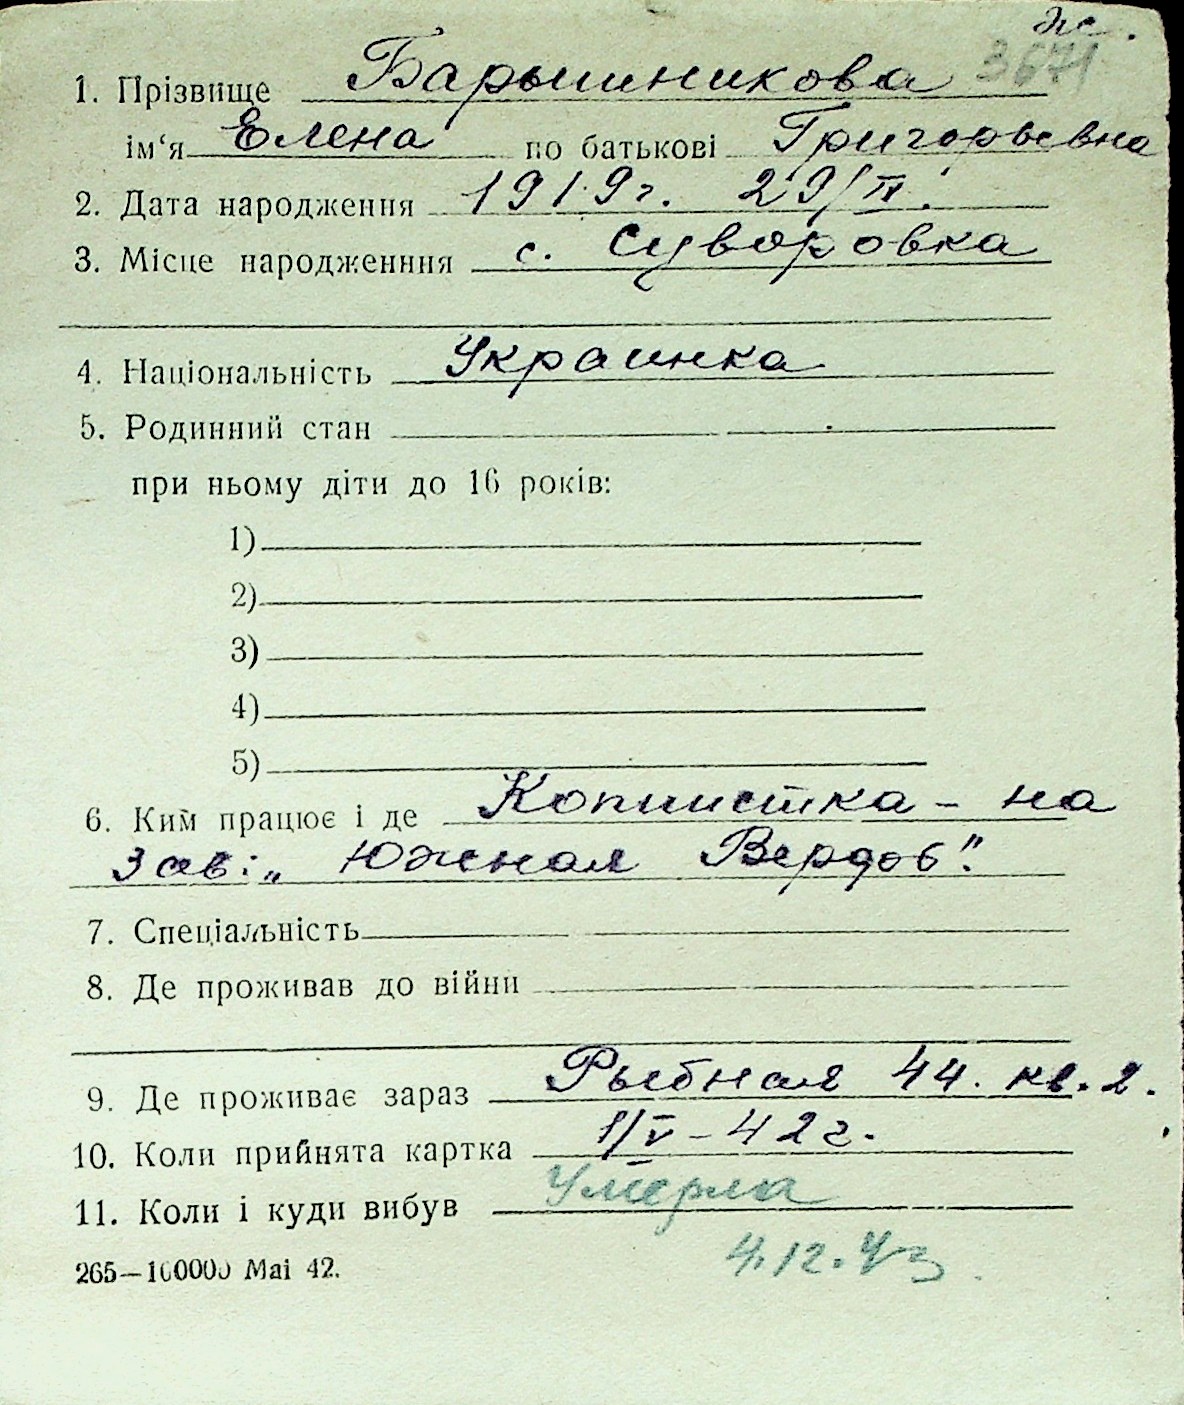 ж.
1. Прізвище Барышникова 3671
ім‘я Елена по батькові Григорьевна
2. Дата народження 1919г. 29/IV.
3. Місце народженння с. Суворовка
4. Національність Украинка
5. Родинний стан
при ньому діти до 16 років:
1)
2)
3)
4)
5)
6. Ким працює і де Копиистка - на
зав: „Южная Верфь“.
7. Спеціальність
8. Де проживав до війни
9. Де проживає зараз Рыбная 44. кв. 2.
10. Коли прийнята картка 1/V - 42 г.
11. Коли і куди вибув Умерла
4.12.43
265—100000 Маі 42.